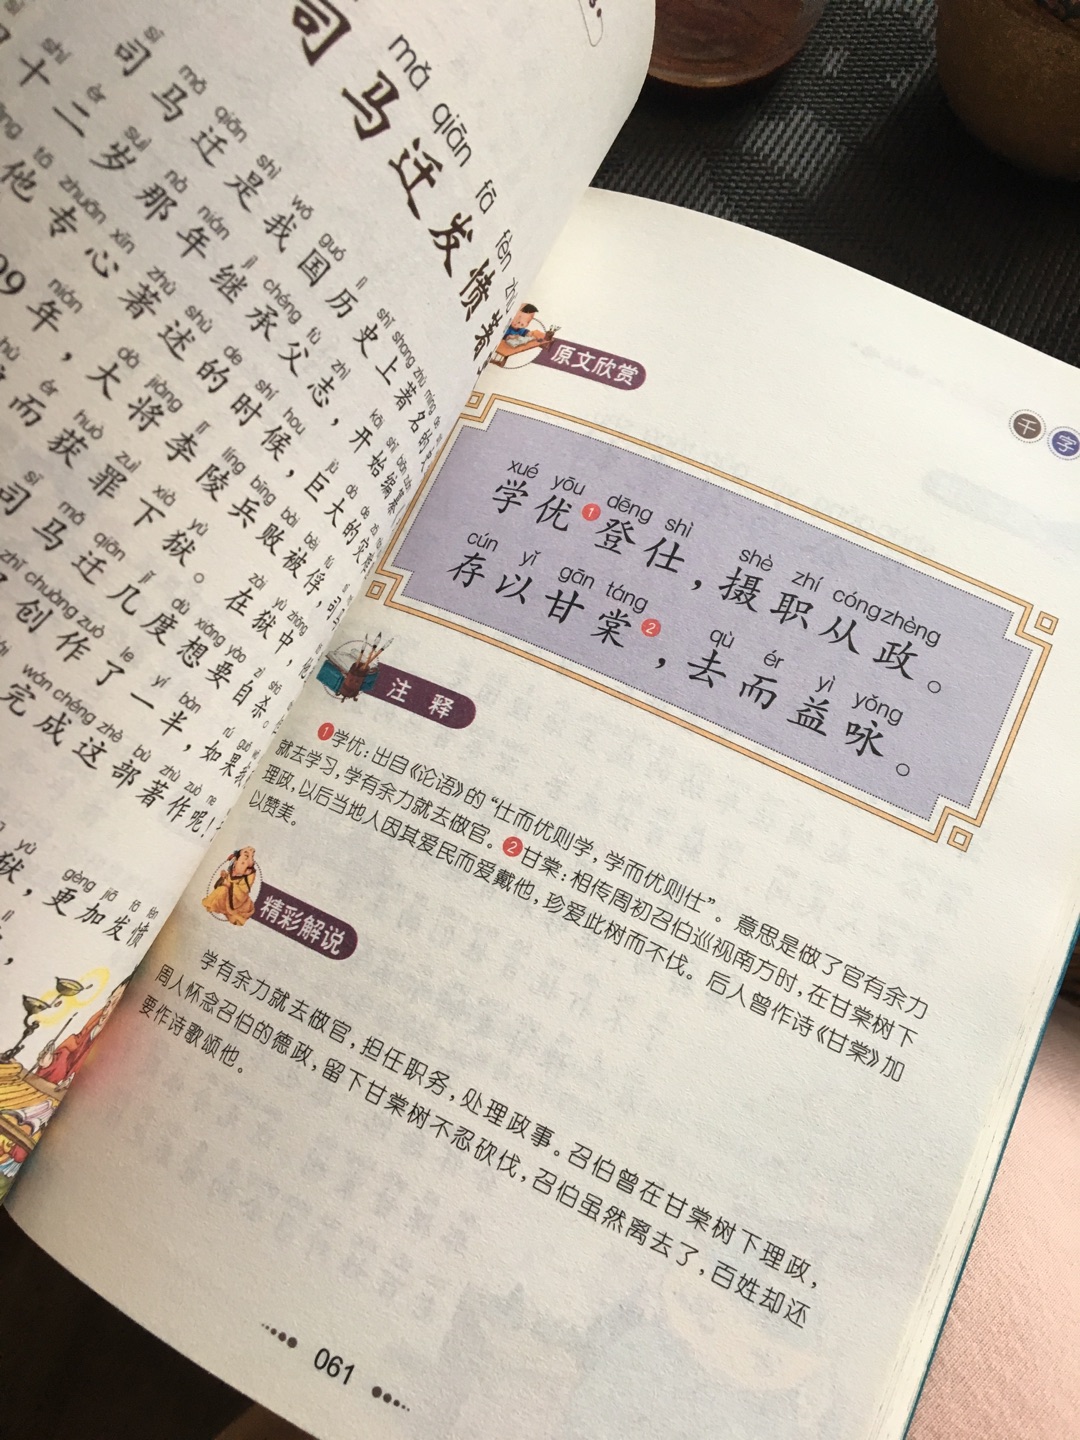 司马迁发愤著
mǎ qiān fā fèn zhù
sī mǎ qiān shì wǒ guó lì shǐ shang zhù míng de
司马迁是我国历史上著名的
shí èr suì nà nián jì chéng fù zhì kāi shǐ biān
十二岁那年继承父志，开始编
tā zhuān xīn zhù shù de shí hou jù dà de zāi
他专心著述的时候，巨大的灾
nián dà jiàng lǐ líng bīng bài bèi fú
年，大将李陵兵败被俘，司
ér huò zuì xià yù zài yù zhōng
而获罪下狱。在狱中，他
sī mǎ qiān jǐ dù xiǎng yào zì shā
司马迁几度想要自杀。
chuàng zuò le yí bàn rú guǒ
创作了一半，如果我
wán chéng zhè bù zhù zuò ne
完成这部著作呢！
yù gèng jiā fā fèn
狱，更加发愤
千字
原文欣赏
xué yōu dēng shì shè zhí cóng zhèng
学优❶登仕，摄职从政。
cún yǐ gān táng qù ér yì yǒng
存以甘棠❷，去而益咏。
注 释
❶学优：出自《论语》的“仕而优则学，学而优则仕”。意思是做了官有余力
就去学习，学有余力就去做官。❷甘棠：相传周初召伯巡视南方时，在甘棠树下
理政，以后当地人因其爱民而爱戴他，珍爱此树而不伐。后人曾作诗《甘棠》加
以赞美。
精彩解说
学有余力就去做官，担任职务，处理政事。召伯曾在甘棠树下理政，
周人怀念召伯的德政，留下甘棠树不忍砍伐，召伯虽然离去了，百姓却还
要作诗歌颂他。
061